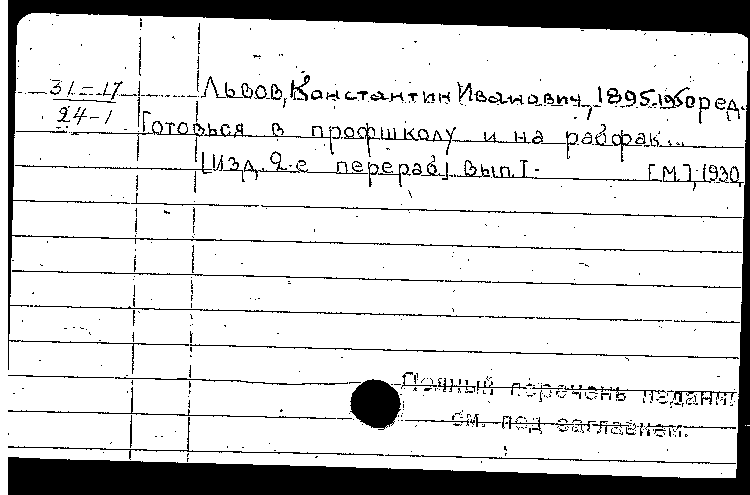 31-17
24-1
Львов, Константин Иванович, 1895-1950 ред.
Готовься в профшколу и на рабфак...
[Изд. 2-е перераб] Вып. I- [М.], 1930.
Полный перечень издани
см. под заглавием.